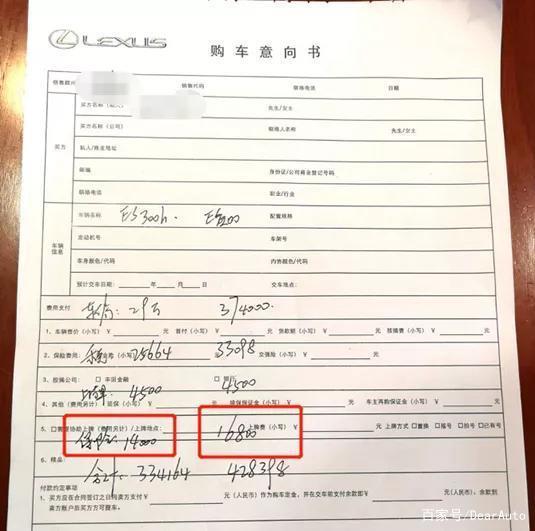 LEXUS 购车意向书
销售顾问 销售代码 联络电话 日期
买方名称（私人） 先生/女士
买方名称（公司） 联络人名称 先生/女士
买方 私人/商业地址
邮编 身份证/公司商业登记号码
联络电话 职业/行业
车辆名称 ES300h. ES200 配置规格
发动机号 车架号
车辆信息
车身颜色/代码 内饰颜色/代码
预计交车日期: 年 月 日 交车地点:
费用支付 车价: 29万 374000.
1、车辆售价（小写）￥ 元 首付（小写）￥ 元 贷款额（小写）￥ 元 按揭费￥ 元
2、保险费用: 25664 33098 交强险（小写）￥ 元
3、按揭公司: □ 丰田金融 □ 银行
上牌: 4500 4500
4、其他（费用另计）延保（小写）￥ 元 续保保证金（小写）￥ 元 车主再购保证金（小写）￥ 元
5、□需要协助上牌（费用另计）/上牌地点: 上牌费（小写）￥ 元 上牌方式 □置换 □摇号 □拍号 □已有号
保险: 14000 16800
6、精品:
合计: 334164 428398
付款约定事项
1、买方应在合同签订之日向卖方支付￥ 元（人民币）作为购车定金，并在交车前支付余款即￥ 元（人民币）。余款到
卖方账户后买方方可提车。
百家号/DearAuto